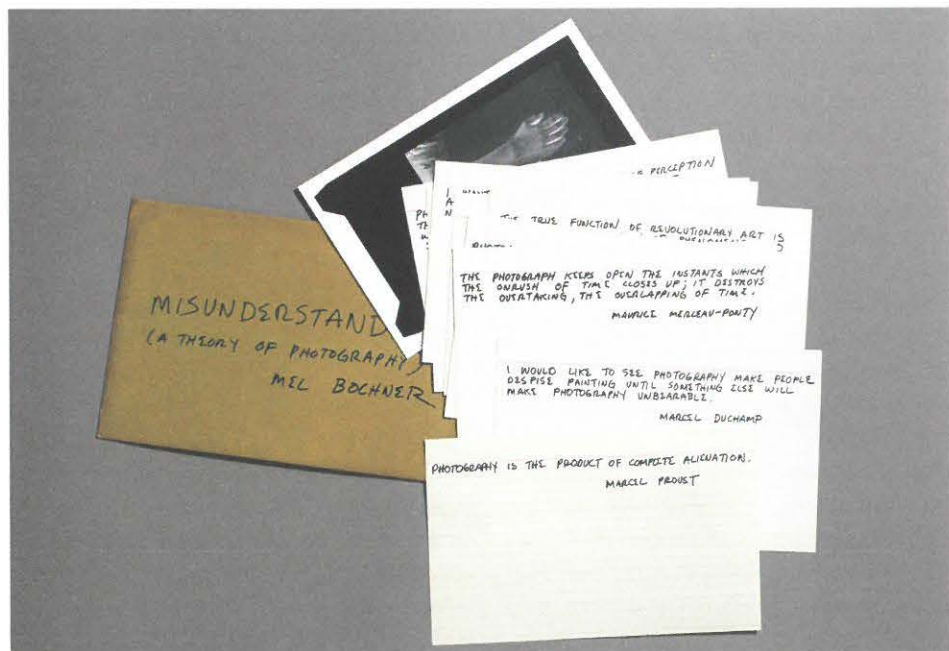 MISUNDERSTAND
(A THEORY OF PHOTOGRAPHY)
MEL BOCHNER
PERCEPTION
I
A
N
PH
TH
THE TRUE FUNCTION OF REVOLUTIONARY ART IS
THE PHOTOGRAPH KEEPS OPEN THE INSTANTS WHICH
THE ONRUSH OF TIME CLOSES UP; IT DESTROYS
THE OVERTAKING, THE OVERLAPPING OF TIME.
MAURICE MERLEAU-PONTY
I WOULD LIKE TO SEE PHOTOGRAPHY MAKE PEOPLE
DESPISE PAINTING UNTIL SOMETHING ELSE WILL
MAKE PHOTOGRAPHY UNBEARABLE.
MARCEL DUCHAMP
PHOTOGRAPHY IS THE PRODUCT OF COMPLETE ALIENATION.
MARCEL PROUST